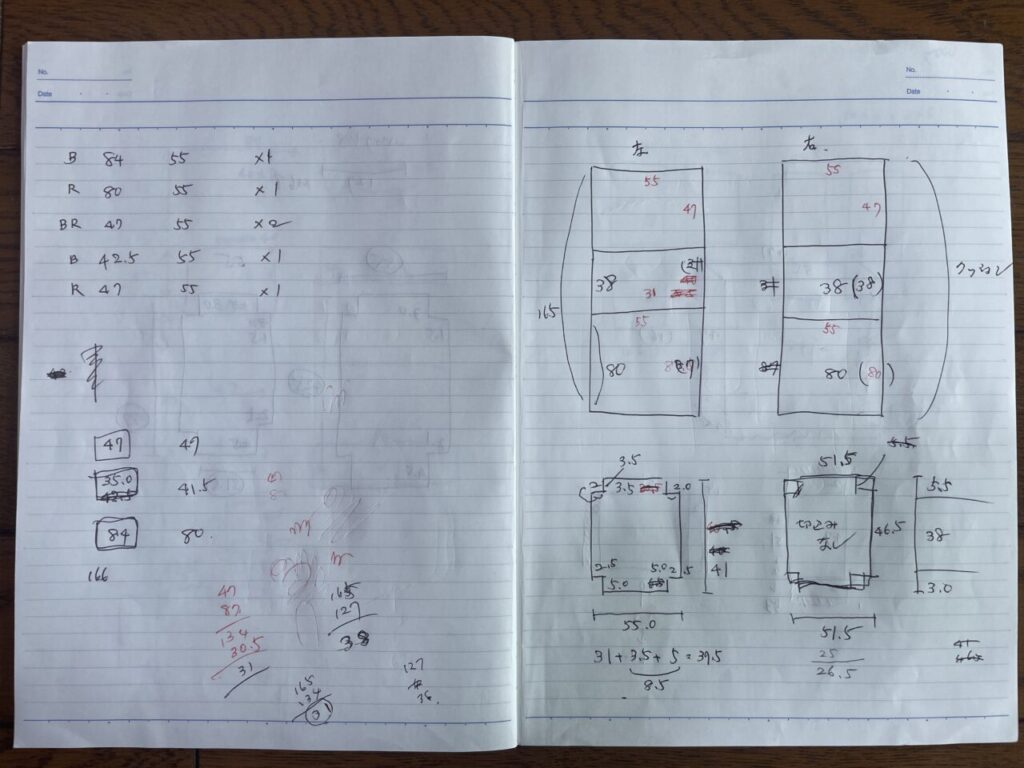 No.
Date
B 84 55 ×1
R 80 55 ×1
BR 47 55 ×2
B 42.5 55 ×1
R 47 55 ×1
47 47
35.0 41.5
42.5
84 80.
166
47
87
134
30.5
31
165
127
38
165
134
31
127
38.
No.
Date
左 右.
55
47
38
31
55
80
165
55
47
38 (38)
55
80 (80)
クッション
3.5
2 3.5 2.0
2.5 5.0 2.5
5.0
41
55.0
31 + 3.5 + 5 = 39.5
8.5
51.5
切こみなし
46.5
51.5
25
26.5
5.5
5.5
38
3.0
41